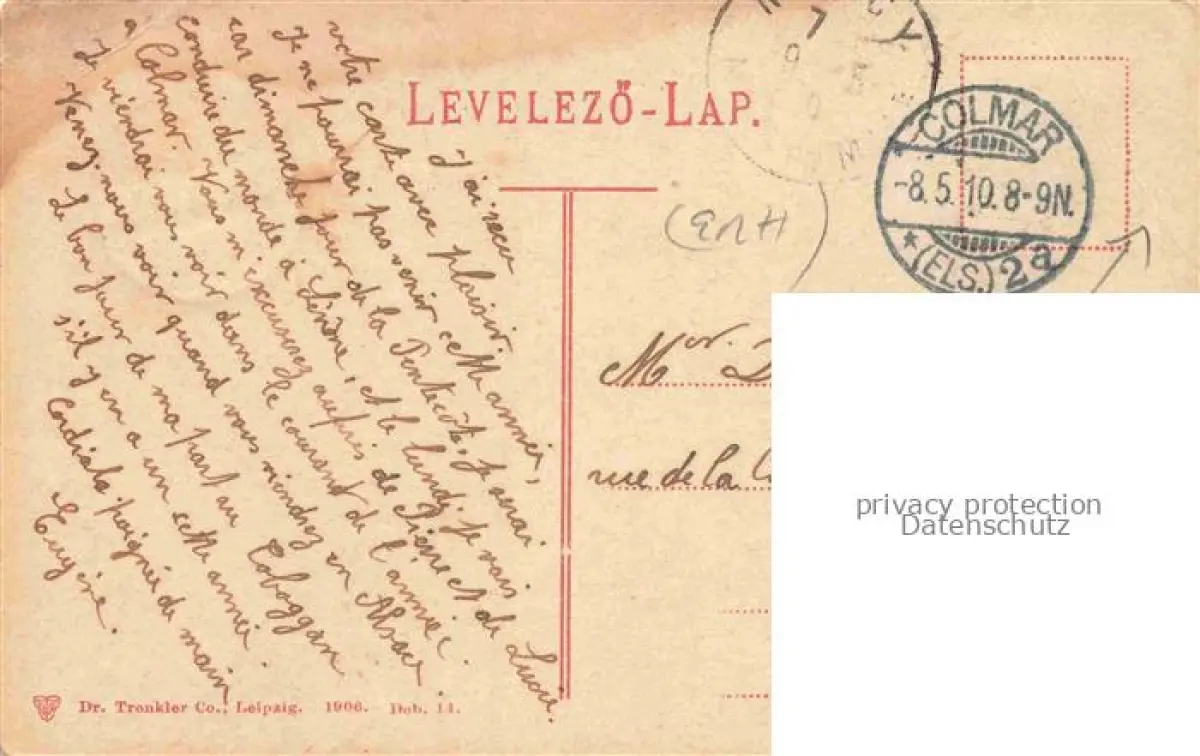 LEVELEZŐ-LAP.
COLMAR
-8.5.10.8-9N.
(ELS.) 2a
J'ai reçu
votre carte avec plaisir.
Je ne pourrai pas venir cette année,
car dimanche jour de la Pentecôte, je serai
à Lérône, et le lundi je vais
conduire du monde
à Colmar. Vous m'excuserez auprès de Pierre et de Lucie.
Je viendrai vous voir dans le courant de l'année.
Venez nous voir quand vous viendrez en Alsace.
Le bon jour de ma part au Toboggan
s'il y en a un cette année.
Cordiale poignée de main
Eugène.
Mr. D
rue de la
privacy protection
Datenschutz
Dr. Trenkler Co., Leipzig. 1906. Deb. 14.